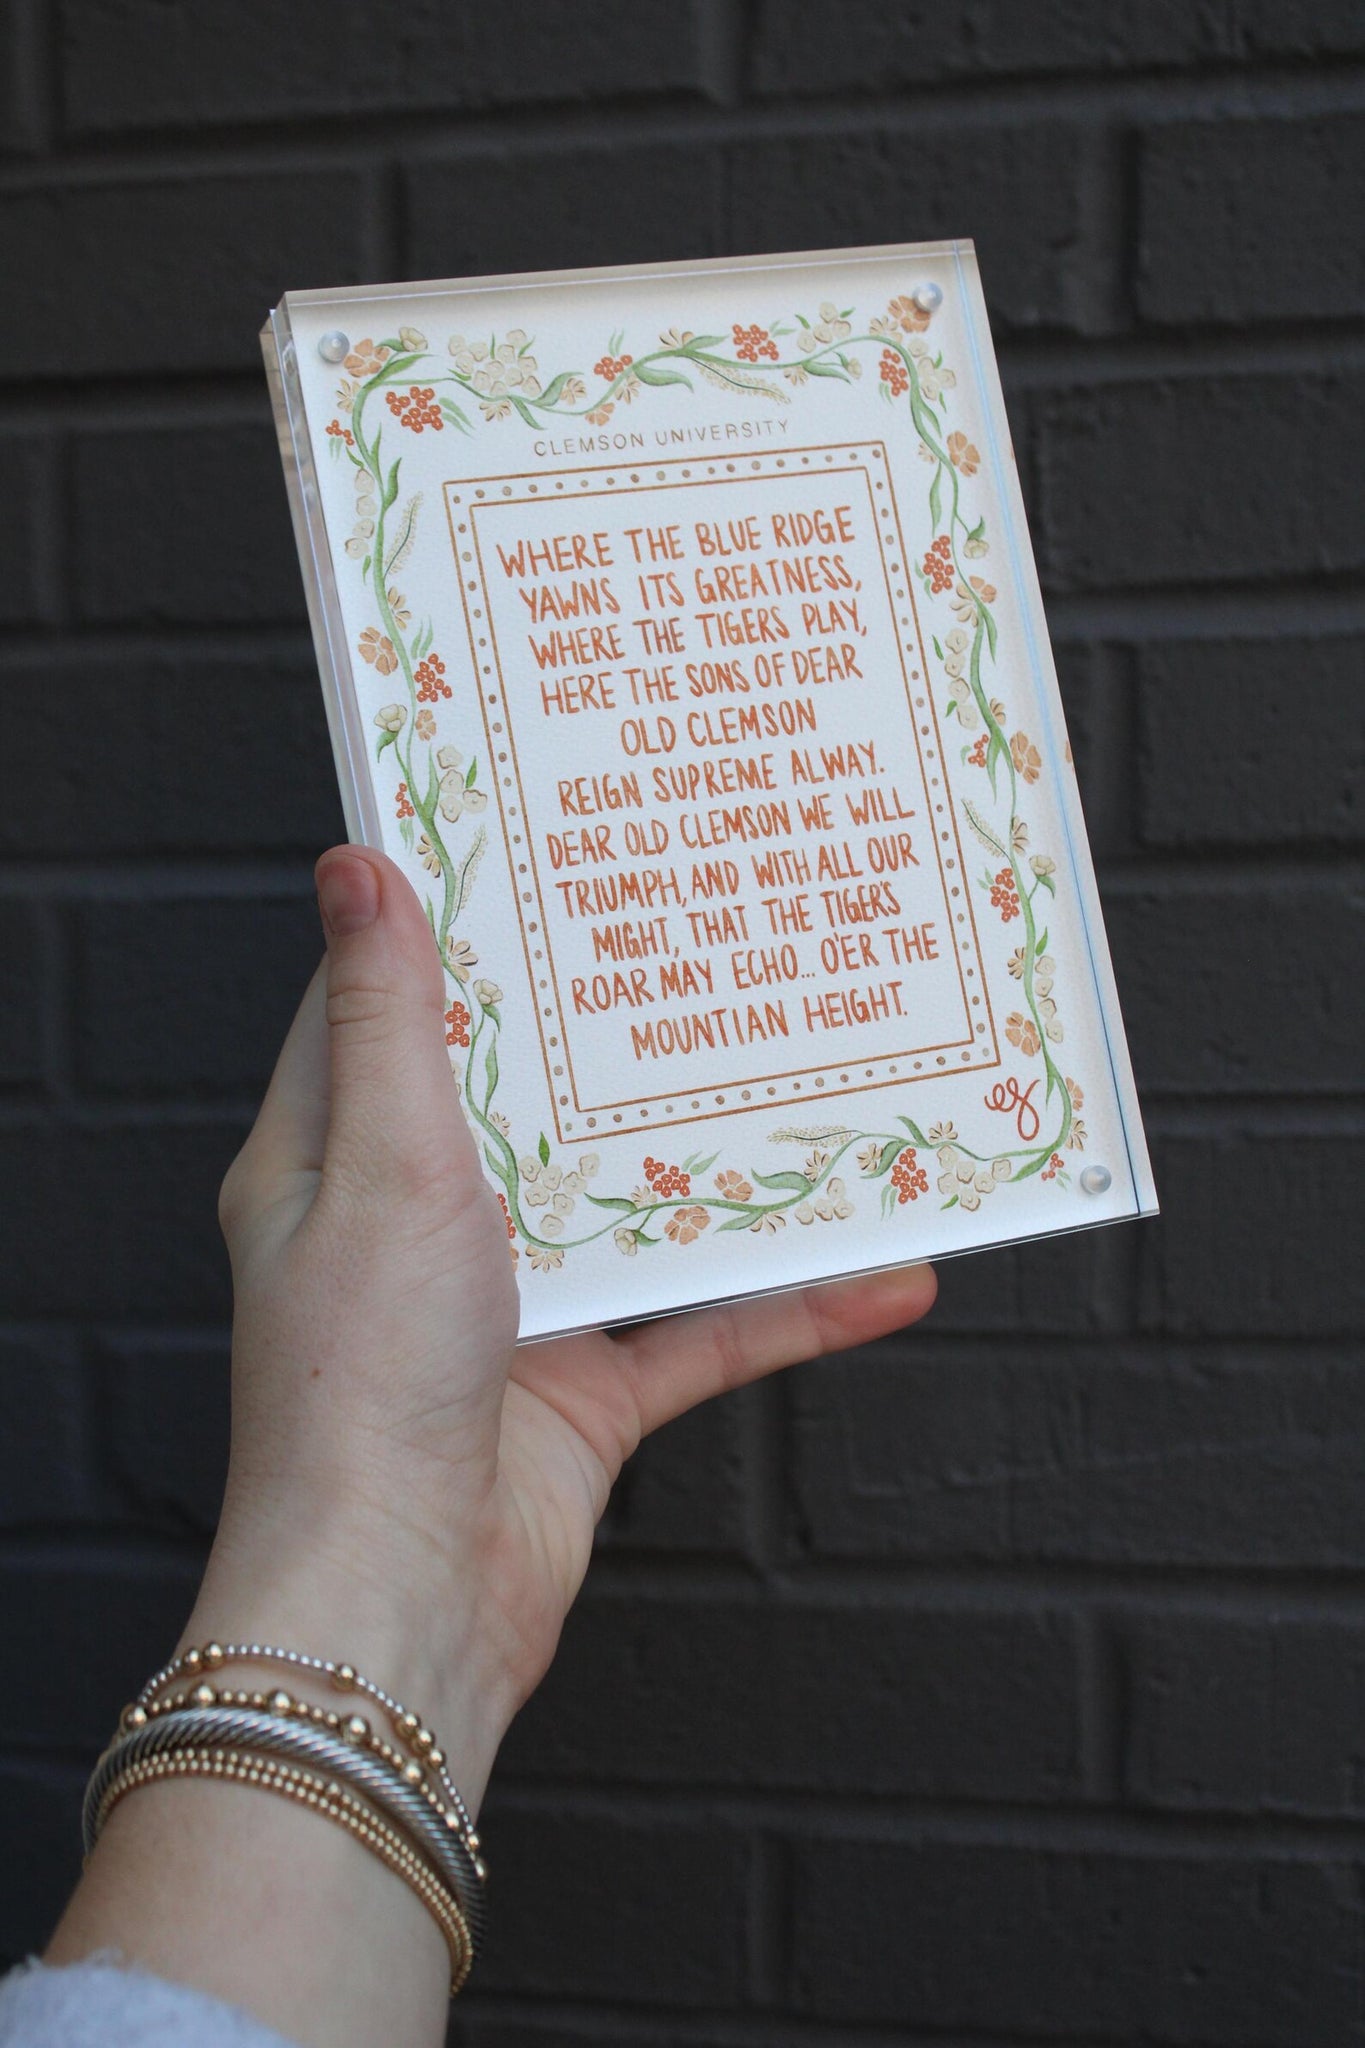 CLEMSON UNIVERSITY
WHERE THE BLUE RIDGE
YAWNS ITS GREATNESS,
WHERE THE TIGERS PLAY,
HERE THE SONS OF DEAR
OLD CLEMSON
REIGN SUPREME ALWAY.
DEAR OLD CLEMSON WE WILL
TRIUMPH, AND WITH ALL OUR
MIGHT, THAT THE TIGER'S
ROAR MAY ECHO... O'ER THE
MOUNTIAN HEIGHT.
eg